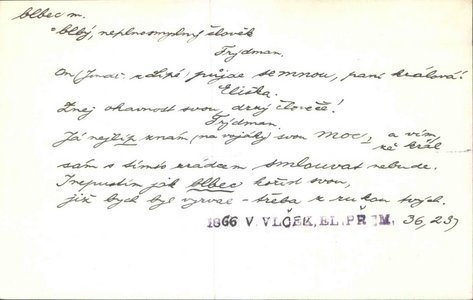 blbec m.
°blbý, neplnosmyslný člověk
Frýdman.
On (Jindř. z Lipé) půjde se mnou, paní králová!
Eliška.
Znej okavnost svou, drzý člověče!
Frýdman
Já nejlíp znám (na vojáky) svou moc, a vím,
že král
sám s tímto zrádcem smlouvat nebude.
I nepustím jak blbec kořist svou,
již bych byl vyrval – třeba z rukou tvých.
1866 V. VLČEK, EL. PŘEM. 36, (23)